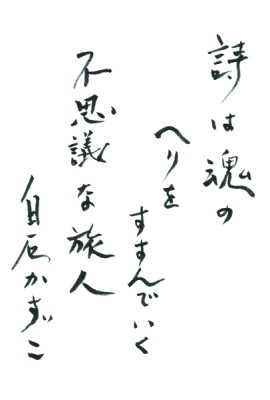 詩は魂の
へりを
すすんでいく
不思議な旅人
白石かずこ